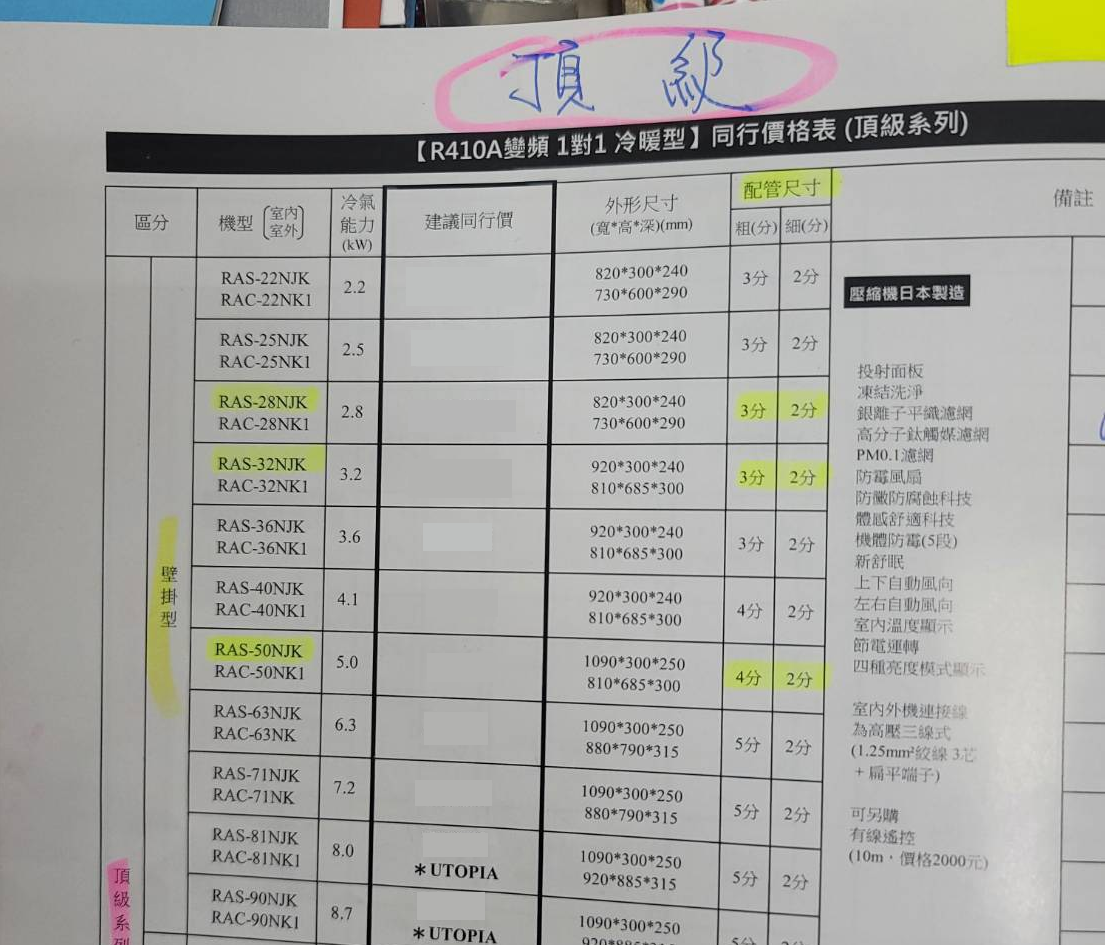 頂級
【R410A變頻 1對1 冷暖型】同行價格表 (頂級系列)
區分 機型 (室內 室外) 冷氣能力(kW) 建議同行價 外形尺寸(寬*高*深)(mm) 配管尺寸 粗(分) 細(分) 備註
壁掛型
頂級系列
RAS-22NJK 2.2 820*300*240 3分 2分
RAC-22NK1 730*600*290
RAS-25NJK 2.5 820*300*240 3分 2分
RAC-25NK1 730*600*290
RAS-28NJK 2.8 820*300*240 3分 2分
RAC-28NK1 730*600*290
RAS-32NJK 3.2 920*300*240 3分 2分
RAC-32NK1 810*685*300
RAS-36NJK 3.6 920*300*240 3分 2分
RAC-36NK1 810*685*300
RAS-40NJK 4.1 920*300*240 4分 2分
RAC-40NK1 810*685*300
RAS-50NJK 5.0 1090*300*250 4分 2分
RAC-50NK1 810*685*300
RAS-63NJK 6.3 1090*300*250 5分 2分
RAC-63NK 880*790*315
RAS-71NJK 7.2 1090*300*250 5分 2分
RAC-71NK 880*790*315
RAS-81NJK 8.0 1090*300*250 5分 2分
RAC-81NK1 *UTOPIA 920*885*315
RAS-90NJK 8.7 1090*300*250 5分 2分
RAC-90NK1 *UTOPIA
壓縮機日本製造
投射面板
凍結洗淨
銀離子平織濾網
高分子鈦觸媒濾網
PM0.1濾網
防霉風扇
防黴防腐蝕科技
體感舒適科技
機體防霉(5段)
新舒眠
上下自動風向
左右自動風向
室內溫度顯示
節電運轉
四種亮度模式顯示
室內外機連接線
為高壓三線式
(1.25mm²絞線 3芯
+ 扁平端子)
可另購
有線遙控
(10m，價格2000元)